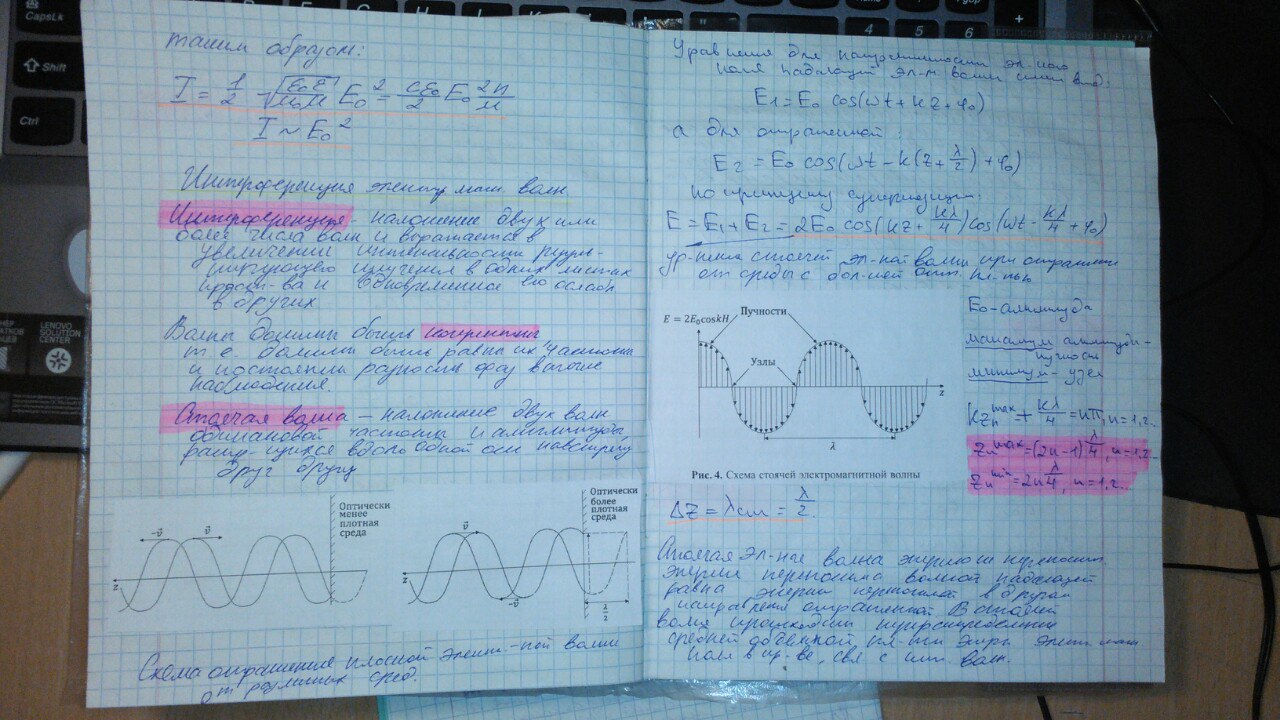 таким образом:
I = 1/2 √(ε₀ε/μ₀μ) E₀² = cε₀/2 E₀² n/μ
I ~ E₀²
Интерференция электр маг. волн
Интерференция - наложение двух или
более числа волн и выражается в
увеличении интенсивности резуль-
тирующего излучения в одних местах
простр-ва и одновременное его ослаб
в других
Волны должны быть когерентны
т.е. должны быть равны их частоты
и постоянны разности фаз в точке
наблюдения.
Стоячая волна - наложение двух волн
одинаковой частоты и амплитуды,
вдоль одной оси навстречу
друг другу
Оптически
менее
плотная
среда
-v⃗
v⃗
z
Оптически
более
плотная
среда
v⃗
-v⃗
z
λ/2
Схема отражения плоской элект-ной волны
от различных сред.
Уравнения для напряженности эл-ного
поля падающей эл-м волны имеет вид:
E₁ = E₀ cos(ωt + kz + φ₀)
а для отраженной:
E₂ = E₀ cos(ωt - k(z + λ/2) + φ₀)
по принципу суперпозиции:
E = E₁ + E₂ = 2E₀ cos(kz + kλ/4) cos(ωt - kλ/4 + φ₀)
ур-ния стоячей эл-маг волны при отражении
от среды с бол-шей опт. пл-тью
E = 2E₀coskH
Пучности
Узлы
z
λ
Рис. 4. Схема стоячей электромагнитной волны
E₀ - амплитуда
максимум амплитуды -
пучность
минимум - узел
kzₙᵐᵃˣ + kλ/4 = nπ, n = 1,2..
zₙᵐᵃˣ = (2n-1) λ/4, n = 1,2...
zₙᵐⁱⁿ = 2n λ/4, n = 1,2...
Δz = λст = λ/2
Стоячая эл-ная волна энергию не переносит.
Энергия переносимая волной падающей
равна энергии переносимой в другом
направлении отраженной. В стоячей
волне происходит перераспределение
средней объемной пл-ти энер. элект маг
поля в пр-ве, свя с инт. волн.
CapsLk
Shift
Ctrl
4
5
6
+
LENOVO
SOLUTION
CENTER